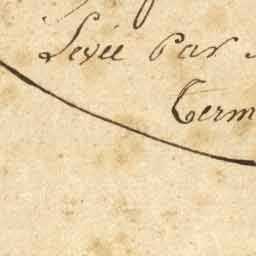 Levée Par
Term